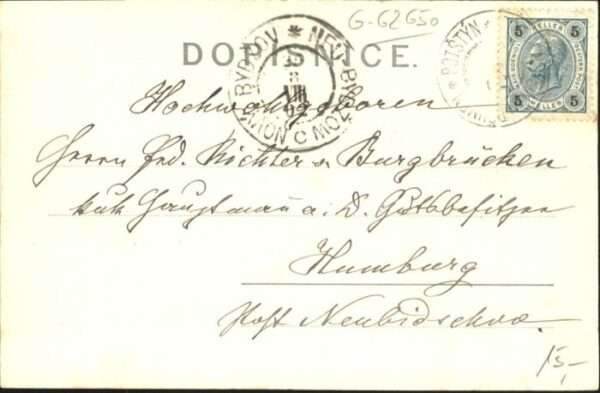 G-G2 650
DOPISNICE.
NEU-BYDŽOV
NOVÝ BYDŽOV
POTŠTÝN
5 HELLER 5
5 HELLER 5
Hochwohlgeboren
Herrn Frd. Richter v. Burgbrücken
k.u.k. Hauptmann a. D. Gutsbesitzer
Humburg
Post Neubidschow.
15,-